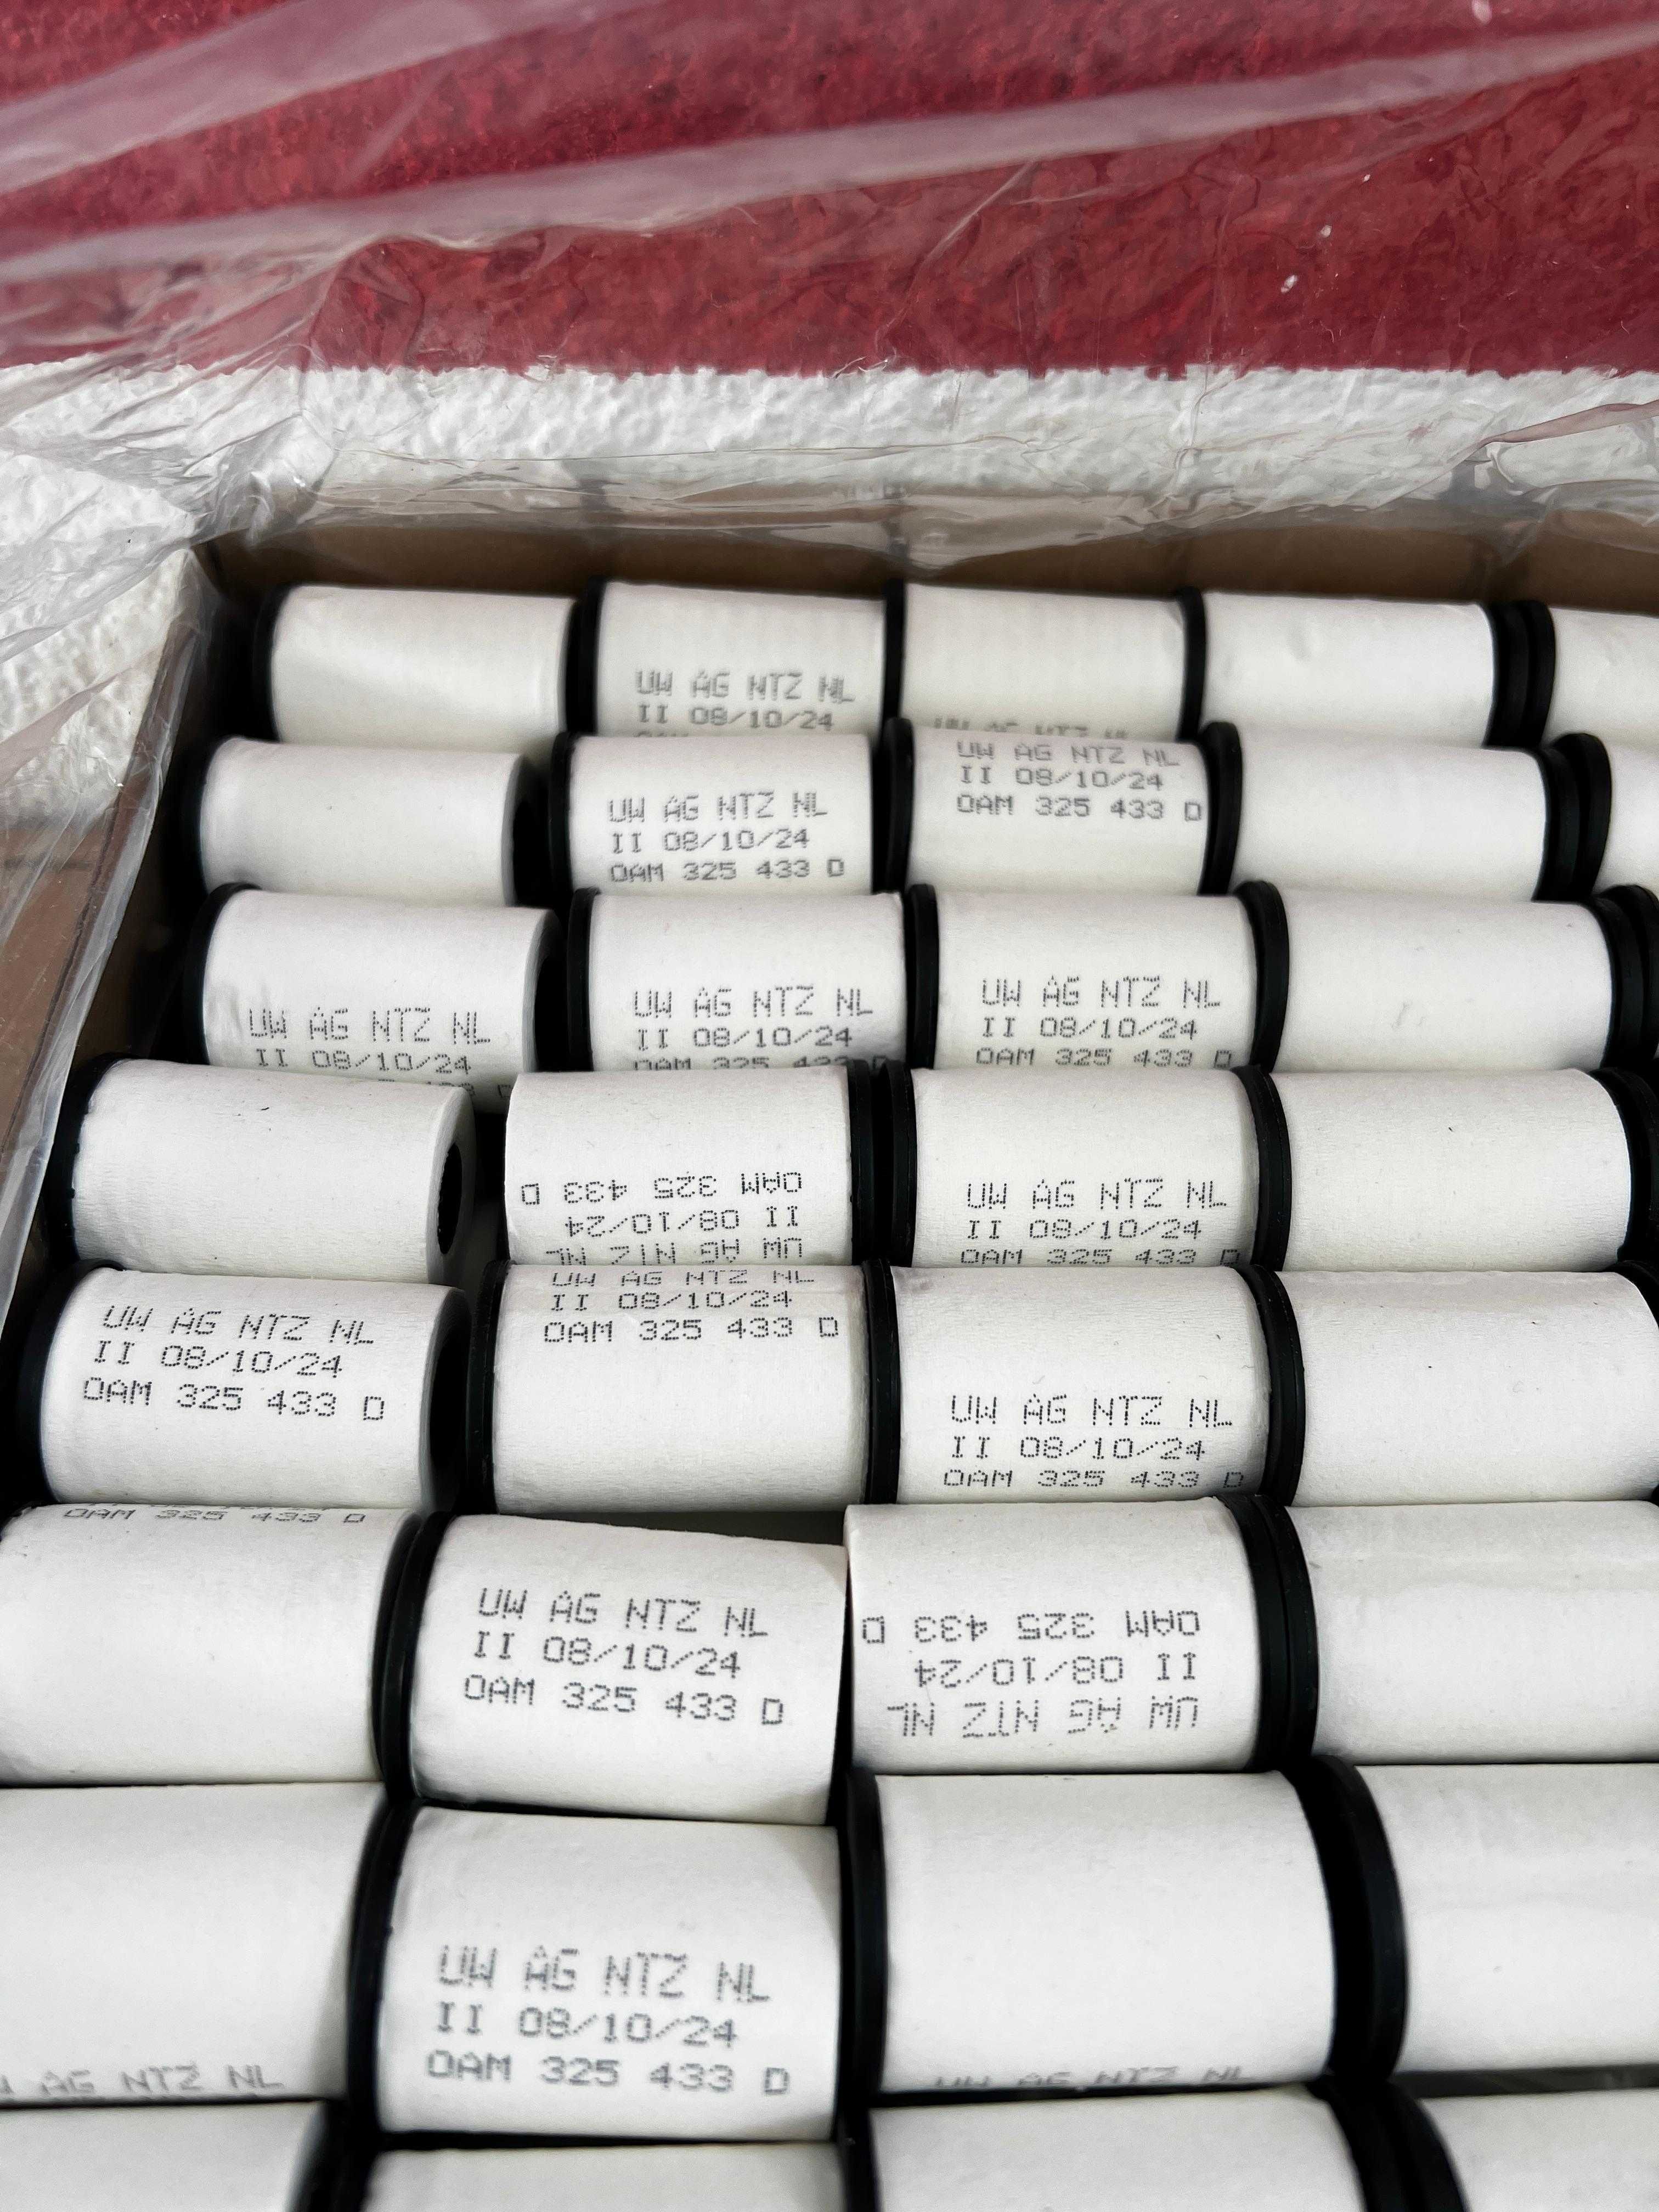 UW AG NTZ NL
II 08/10/24
UW AG NTZ NL
UW AG NTZ NL
II 08/10/24
OAM 325 433 D
UW AG NTZ NL
II 08/10/24
OAM 325 433 D
UW AG NTZ NL
II 08/10/24
UW AG NTZ NL
II 08/10/24
OAM 325 433 D
UW AG NTZ NL
II 08/10/24
OAM 325 433 D
UW AG NTZ NL
II 08/10/24
OAM 325 433 D
UW AG NTZ NL
II 08/10/24
OAM 325 433 D
UW AG NTZ NL
II 08/10/24
OAM 325 433 D
UW AG NTZ NL
II 08/10/24
OAM 325 433 D
UW AG NTZ NL
II 08/10/24
OAM 325 433 D
OAM 325 433 D
UW AG NTZ NL
II 08/10/24
OAM 325 433 D
UW AG NTZ NL
II 08/10/24
OAM 325 433 D
AG NTZ NL
UW AG NTZ NL
II 08/10/24
OAM 325 433 D
UW AG NTZ NL